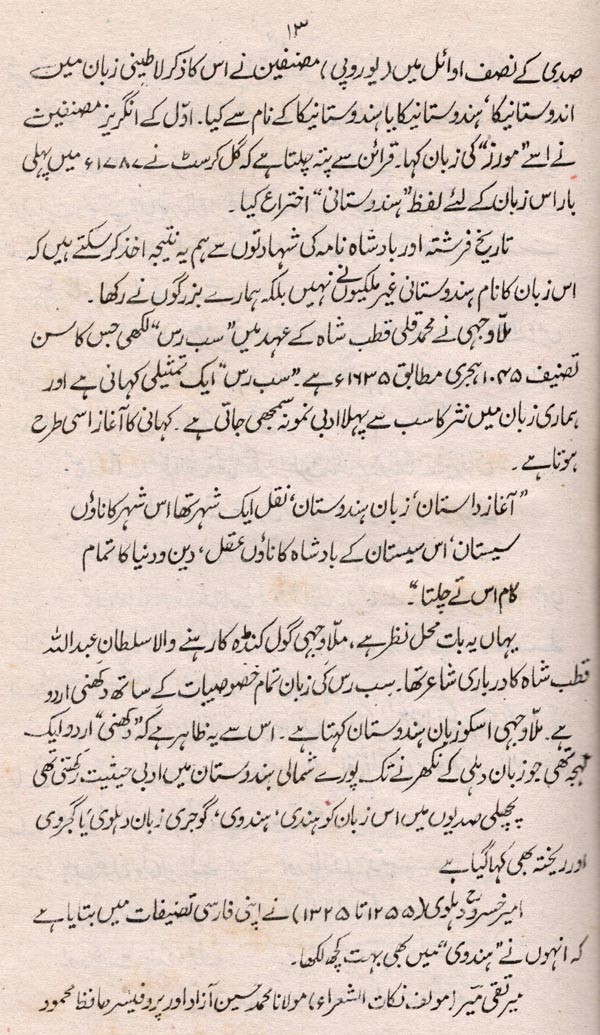 ۱۳
صدی کے نصف اوائل میں (یوروپی) مصنفین نے اس کا ذکر لاطینی زبان میں
اندوستانیکا، ہندوستانیکا یا ہندوستانیکا کے نام سے کیا۔ اوّل کے انگریز مصنفین
نے اسے "مورز" کی زبان کہا۔ قرائن سے پتہ چلتا ہے کہ گل کرسٹ نے ۱۷۸۷ء میں پہلی
بار اس زبان کے لئے لفظ "ہندوستانی" اختراع کیا۔
تاریخ فرشتہ اور بادشاہ نامہ کی شہادتوں سے ہم یہ نتیجہ اخذ کر سکتے ہیں کہ
اس زبان کا نام ہندوستانی غیر ملکیوں نے نہیں بلکہ ہمارے بزرگوں نے رکھا۔
ملّا وجہی نے محمد قلی قطب شاہ کے عہد میں "سب رس" لکھی جس کا سن
تصنیف ۱۰۴۵ ہجری مطابق ۱۶۳۵ء ہے۔ "سب رس" ایک تمثیلی کہانی ہے اور
ہماری زبان میں نثر کا سب سے پہلا ادبی نمونہ سمجھی جاتی ہے۔ کہانی کا آغاز اسی طرح
ہوتا ہے۔
"آغاز داستان، زبان ہندوستان، نقل ایک شہر تھا اس شہر کا ناؤں
سیستان، اس سیستان کے بادشاہ کا ناؤں عقل، دین و دنیا کا تمام
کام اس تے چلتا"۔
یہاں یہ بات محل نظر ہے، ملّا وجہی گول کنڈہ کا رہنے والا سلطان عبداللہ
قطب شاہ کا درباری شاعر تھا۔ سب رس کی زبان تمام خصوصیات کے ساتھ دکھنی اردو
ہے۔ ملّا وجہی اسکو زبان ہندوستان کہتا ہے۔ اس سے یہ ظاہر ہے کہ "دکھنی" اردو ایک
لہجہ تھی جو زبان دہلی کے نکھرنے تک پورے شمالی ہندوستان میں ادبی حیثیت رکھتی تھی
پچھلی صدیوں میں اس زبان کو ہندی، ہندوی، گوجری زبان دہلوی، یا گجروی
اور ریختہ بھی کہا گیا ہے
امیر خسروؒ دہلوی (۱۲۵۵ تا ۱۳۲۵) نے اپنی فارسی تصنیفات میں بتایا ہے
کہ انہوں نے "ہندوی" میں بھی بہت کچھ لکھا۔
میر تقی میر (مولف نکات الشعراء)، مولانا محمد حسین آزاد اور پروفیسر حافظ محمود